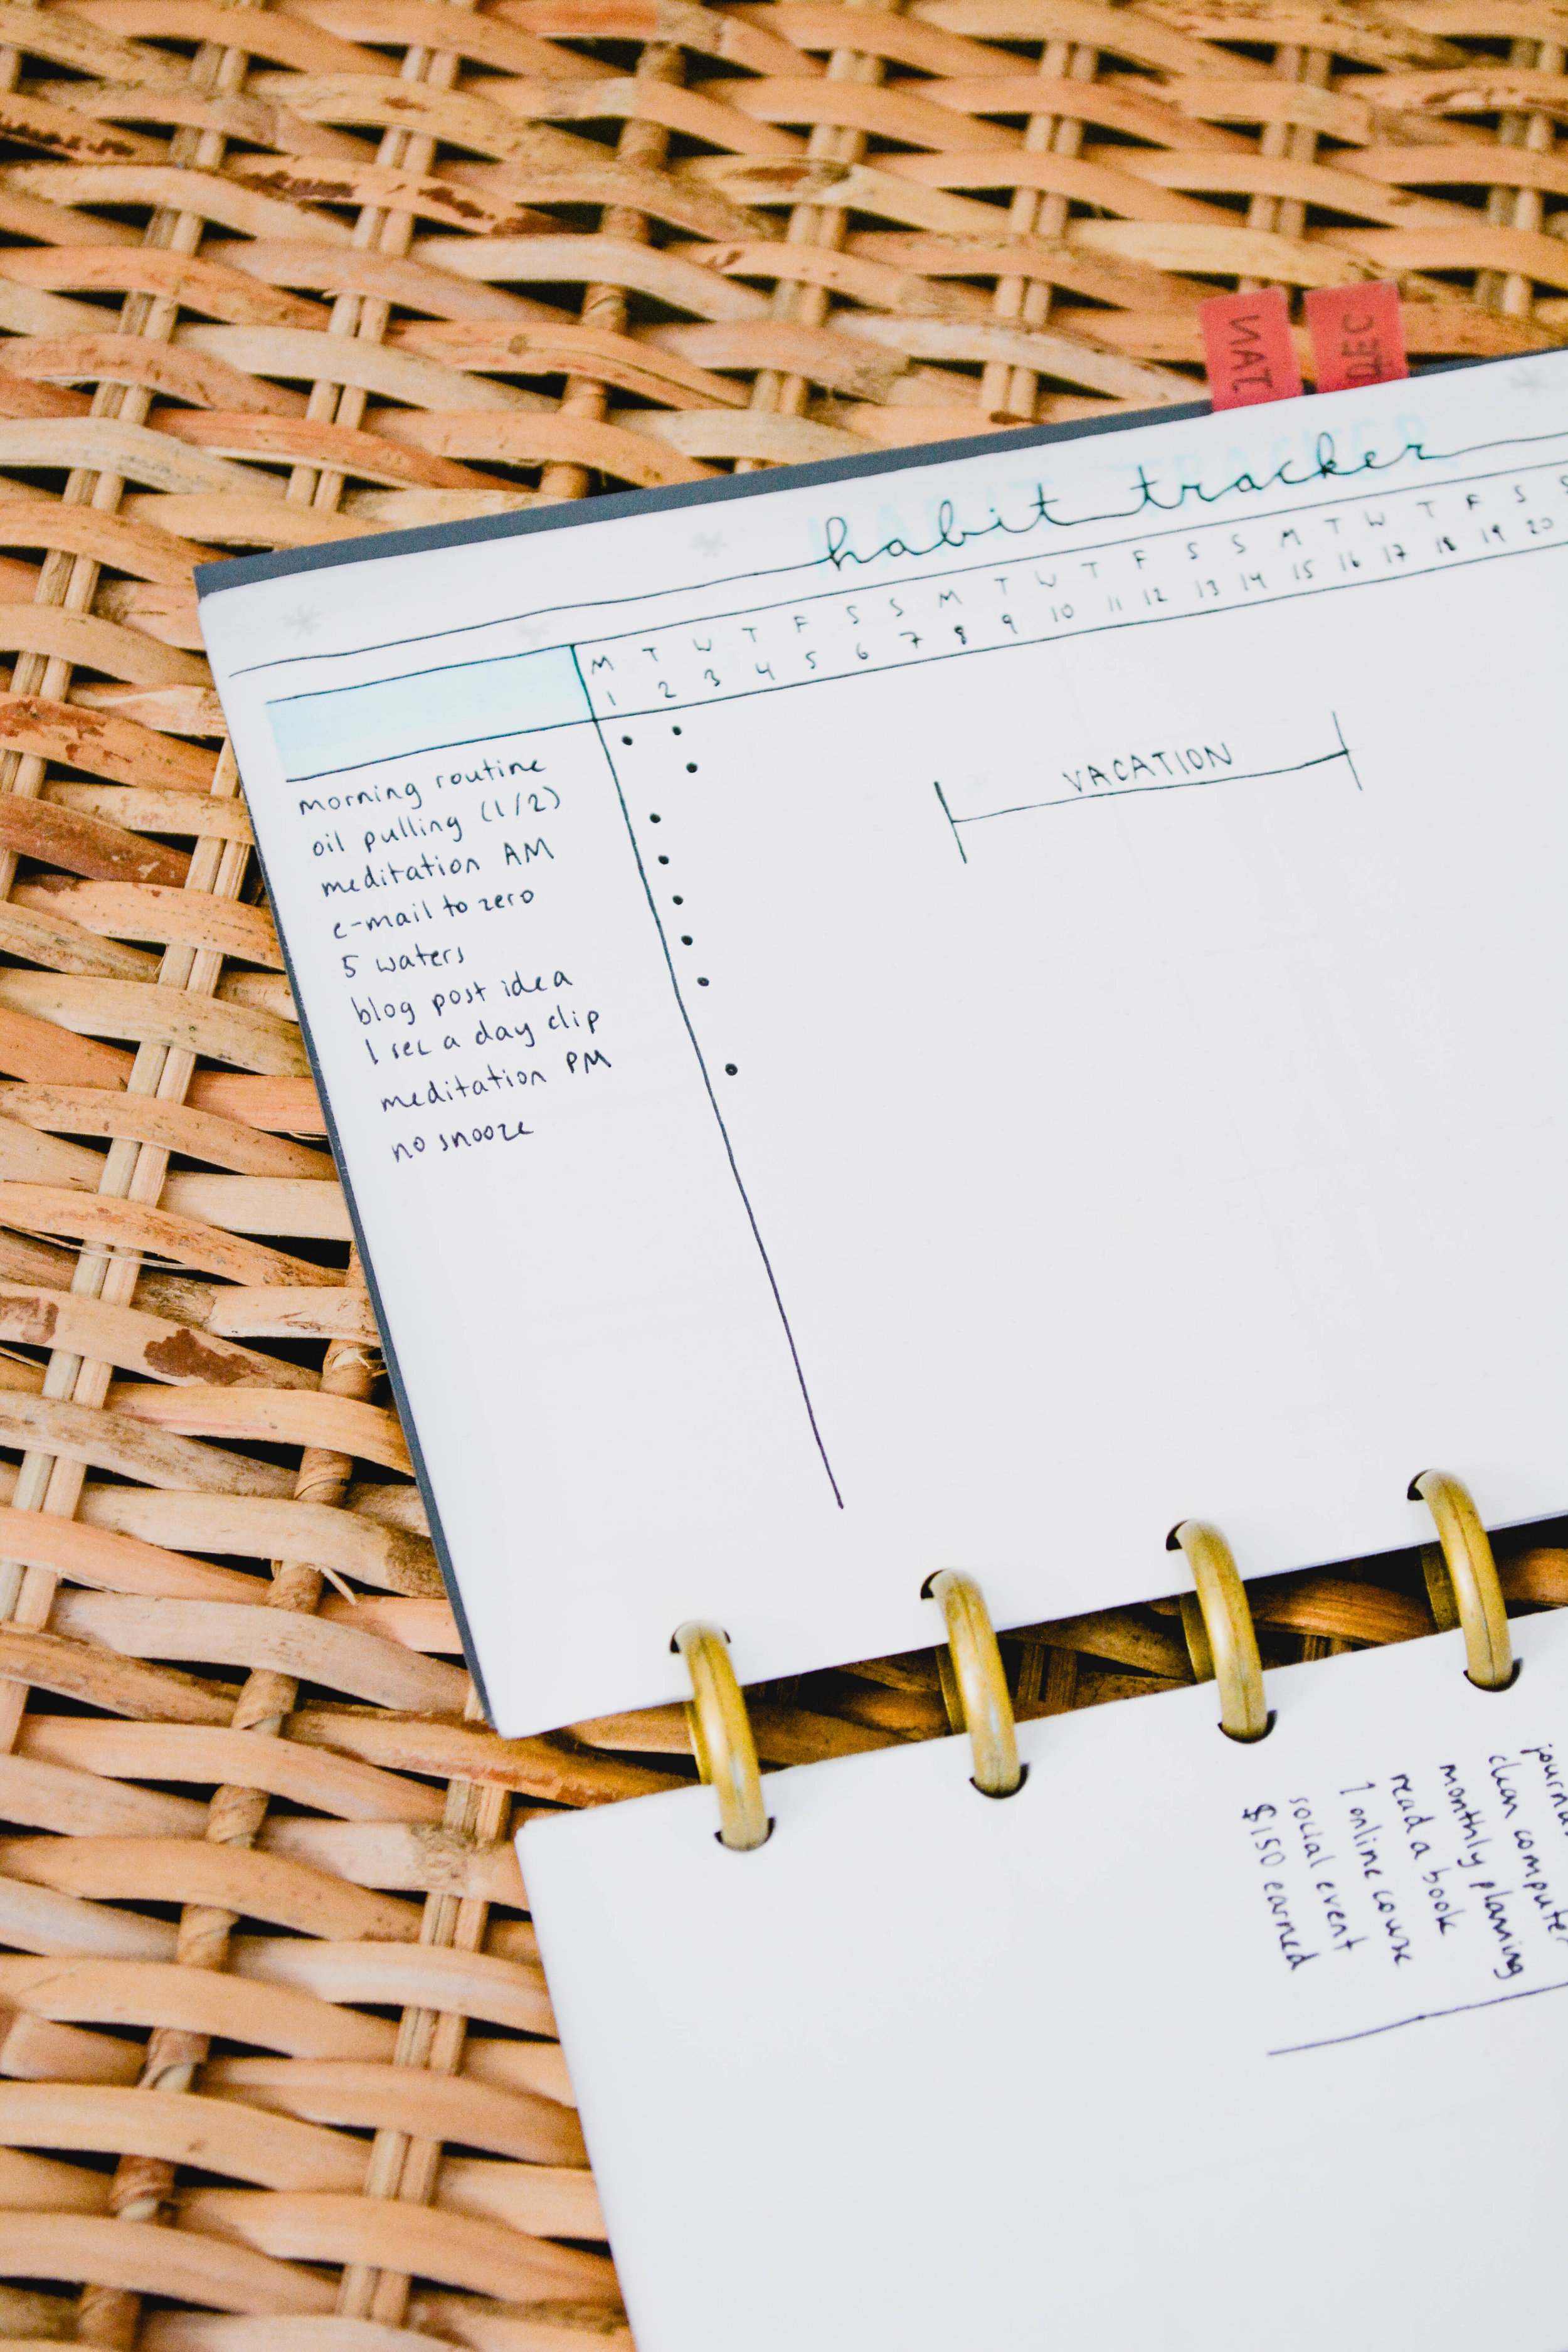 JAN
DEC
habit tracker
M T W T F S S M T W T F S S M T W T F S S
1 2 3 4 5 6 7 8 9 10 11 12 13 14 15 16 17 18 19 20
VACATION
morning routine
oil pulling (1/2)
meditation AM
e-mail to zero
5 waters
blog post idea
1 sec a day clip
meditation PM
no snooze
clean computer
monthly planning
read a book
1 online course
social event
$150 earned